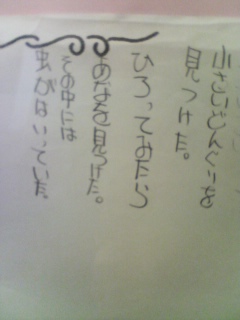 小さいどんぐりを
見つけた。
ひろっておたら
あなを見つけた。
その中には
虫がはいっていた。